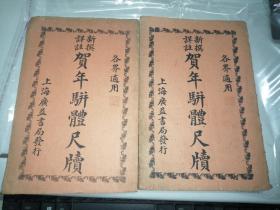 各界適用
新撰詳註
賀年駢體尺牘
上海廣益書局發行
各界適用
新撰詳註
賀年駢體尺牘
上海廣益書局發行